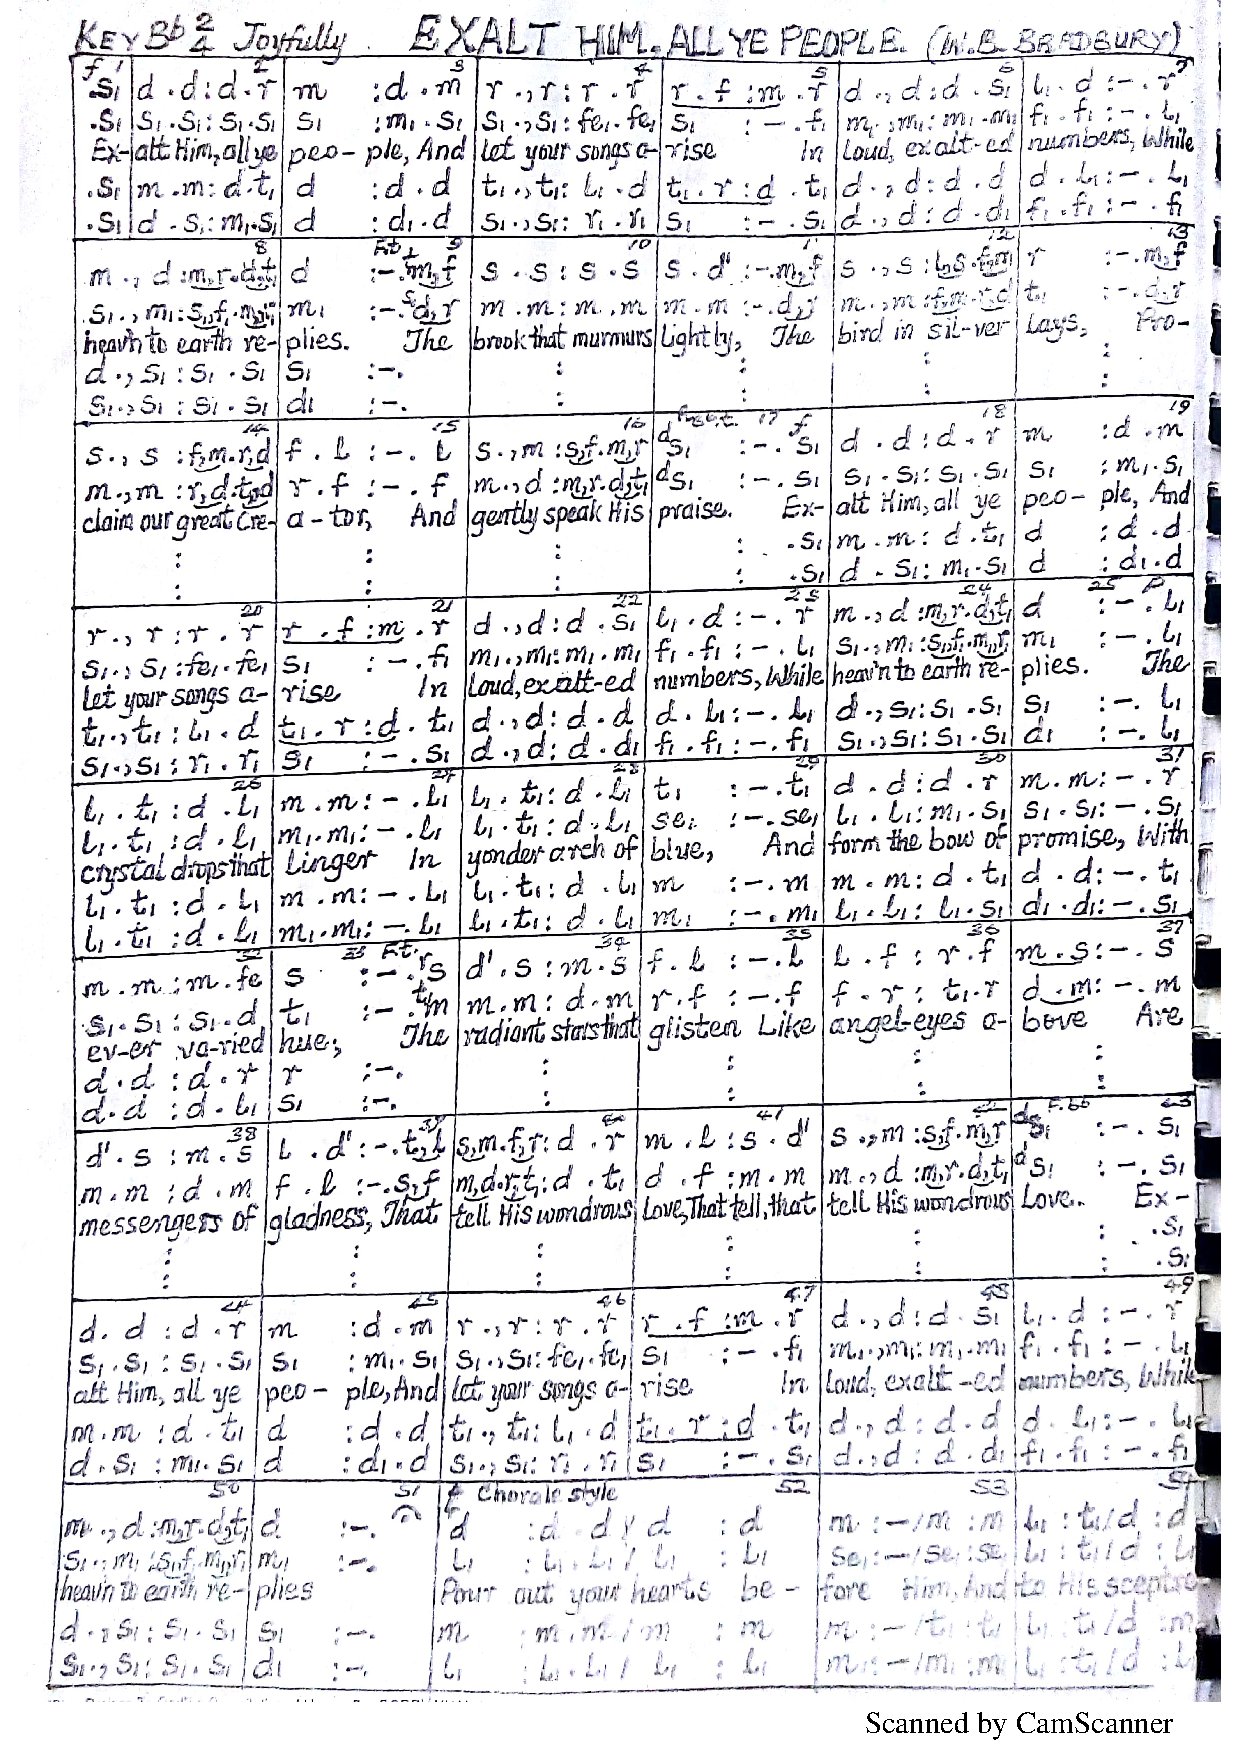 KEY Bb 2/4 Joyfully. EXALT HIM, ALL YE PEOPLE. (W.B. BRADBURY)
f 1 2 3 4 5 6 7
.S₁|d . d : d . r|m : d . m|r . , r : r . r|r . f : m . r|d . , d : d . s₁|l₁ . d : - . r
.S₁|S₁ . S₁ : S₁ . S₁|S₁ : m₁ . S₁|S₁ . , S₁ : fe₁ . fe₁|S₁ : - . f₁|m₁ . , m₁ : m₁ . m₁|f₁ . f₁ : - . l₁
Ex-|alt Him, all ye|peo- ple, And|let your songs a-|rise In|loud, exalt-ed|numbers, While
.S₁|m . m : d . t₁|d : d . d|t₁ . , t₁ : l₁ . d|t₁ . r : d . t₁|d . , d : d . d|d . l₁ : - . l₁
.S₁|d . S₁ : m₁ . S₁|d : d₁ . d|S₁ . , S₁ : r₁ . r₁|S₁ : - . S₁|d . , d : d . d₁|f₁ . f₁ : - . f₁
8 F.t. 9 10 11 12 13
m . , d : m,r . d,t₁|d : - . m,f|s . s : s . s|s . d' : - . m,f|s . , s : l,s . f,m|r : - . m,f
S₁ . , m₁ : S₁,f₁ . m₁,r₁|m₁ : - . d,r|m . m : m . m|m . m : - . d,r|m . , m : f,m . r,d|t₁ : - . d,r
heav'n to earth re-|plies. The|brook that murmurs|lightly, The|bird in sil-ver|lays, Pro-
d . , S₁ : S₁ . S₁|S₁ : - .|:|:|:|:
S₁ . , S₁ : S₁ . S₁|d₁ : - .|:|:|:|:
14 15 16 17 f 18 19
s . , s : f,m . r,d|f . l : - . l|s . , m : s,f . m,r|d S₁ : - . S₁|d . d : d . r|m : d . m
m . , m : r,d . t₁,d|r . f : - . f|m . , d : m,r . d,t₁|d S₁ : - . S₁|S₁ . S₁ : S₁ . S₁|S₁ : m₁ . S₁
claim our great Cre-|a-tor, And|gently speak His|praise. Ex-|alt Him, all ye|peo- ple, And
:|:|:|: . S₁|m . m : d . t₁|d : d . d
:|:|:|: . S₁|d . S₁ : m₁ . S₁|d : d₁ . d
20 21 22 23 24 25 p
r . , r : r . r|r . f : m . r|d . , d : d . S₁|l₁ . d : - . r|m . , d : m,r . d,t₁|d : - . l₁
S₁ . , S₁ : fe₁ . fe₁|S₁ : - . f₁|m₁ . , m₁ : m₁ . m₁|f₁ . f₁ : - . l₁|S₁ . , m₁ : S₁,f₁ . m₁,r₁|m₁ : - . l₁
let your songs a-|rise In|loud, exalt-ed|numbers, While|heav'n to earth re-|plies. The
t₁ . , t₁ : l₁ . d|t₁ . r : d . t₁|d . , d : d . d|d . l₁ : - . l₁|d . , S₁ : S₁ . S₁|S₁ : - . l₁
S₁ . , S₁ : r₁ . r₁|S₁ : - . S₁|d . , d : d . d₁|f₁ . f₁ : - . f₁|S₁ . , S₁ : S₁ . S₁|d₁ : - . l₁
26 27 28 29 30 31
l₁ . t₁ : d . l₁|m . m : - . l₁|l₁ . t₁ : d . l₁|t₁ : - . t₁|d . d : d . r|m . m : - . r
l₁ . t₁ : d . l₁|m₁ . m₁ : - . l₁|l₁ . t₁ : d . l₁|se₁ : - . se₁|l₁ . l₁ : m₁ . S₁|S₁ . S₁ : - . S₁
crystal drops that|linger In|yonder arch of|blue, And|form the bow of|promise, With
l₁ . t₁ : d . l₁|m . m : - . l₁|l₁ . t₁ : d . l₁|m : - . m|m . m : d . t₁|d . d : - . t₁
l₁ . t₁ : d . l₁|m₁ . m₁ : - . l₁|l₁ . t₁ : d . l₁|m₁ : - . m₁|l₁ . l₁ : l₁ . S₁|d₁ . d₁ : - . S₁
32 33 F.t. 34 35 36 37
m . m : m . fe|s : - . r s|d' . s : m . s|f . l : - . l|l . f : r . f|m . s : - . s
S₁ . S₁ : S₁ . d|t₁ : - . t₁ m|m . m : d . m|r . f : - . f|f . r : t₁ . r|d . m : - . m
ev-er varied|hue; The|radiant stars that|glisten Like|angel-eyes a-|bove Are
d . d : d . r|r : - .|:|:|:|:
d . d : d . l₁|S₁ : - .|:|:|:|:
38 39 40 41 42 43
d' . s : m . s|l . d' : - . t,l|s,m . f,r : d . r|m . l : s . d'|s . , m : s,f . m,r|d S₁ : - . S₁
m . m : d . m|f . l : - . s,f|m,d . r,t₁ : d . t₁|d . f : m . m|m . , d : m,r . d,t₁|d S₁ : - . S₁
messengers of|gladness, That|tell His wondrous|love, That tell, that|tell His wondrous|love. Ex-
:|:|:|:|:|: . S₁
:|:|:|:|:|: . S₁
44 45 46 47 48 49
d . d : d . r|m : d . m|r . , r : r . r|r . f : m . r|d . , d : d . S₁|l₁ . d : - . r
S₁ . S₁ : S₁ . S₁|S₁ : m₁ . S₁|S₁ . , S₁ : fe₁ . fe₁|S₁ : - . f₁|m₁ . , m₁ : m₁ . m₁|f₁ . f₁ : - . l₁
alt Him, all ye|peo- ple, And|let your songs a-|rise In|loud, exalt-ed|numbers, While
m . m : d . t₁|d : d . d|t₁ . , t₁ : l₁ . d|t₁ . r : d . t₁|d . , d : d . d|d . l₁ : - . l₁
d . S₁ : m₁ . S₁|d : d₁ . d|S₁ . , S₁ : r₁ . r₁|S₁ : - . S₁|d . , d : d . d₁|f₁ . f₁ : - . f₁
50 51 f Chorale style 52 53 54
m . , d : m,r . d,t₁|d : - .|d : d . d / d : d|m : - / m : m|l₁ : t₁ / d : d
S₁ . , m₁ : S₁,f₁ . m₁,r₁|m₁ : - .|l₁ : l₁ . l₁ / l₁ : l₁|se₁ : - / se₁ : se₁|l₁ : t₁ / d : l₁
heav'n to earth re-|plies|Pour out your hearts be-|fore Him, And|to His sceptre
d . , S₁ : S₁ . S₁|S₁ : - .|m : m . m / m : m|m : - / t₁ : t₁|l₁ : t₁ / d : m
S₁ . , S₁ : S₁ . S₁|d₁ : - .|l₁ : l₁ . l₁ / l₁ : l₁|m₁ : - / m₁ : m₁|l₁ : t₁ / d : l₁
Scanned by CamScanner